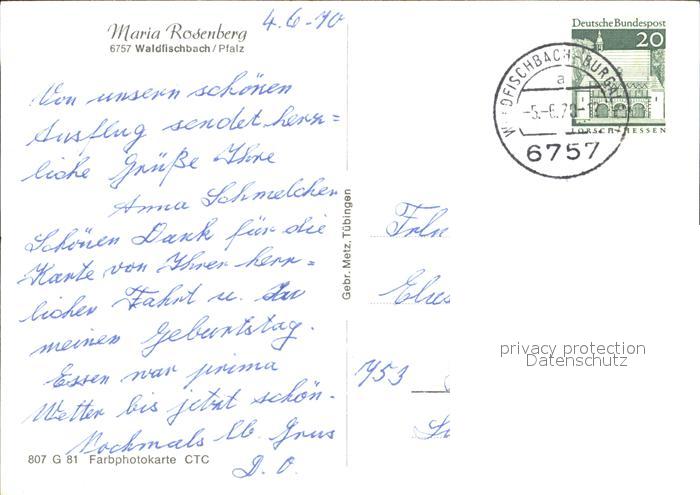 Maria Rosenberg
6757 Waldfischbach/Pfalz
4.6-70
Von unsern schönen
Ausflug sendet herr=
liche Grüße Ihre
Anna Schmelcher
Schönen Dank für die
Karte von Ihrer herr=
lichen Fahrt u.
meinen Geburtstag.
Essen war prima
Wetter bis jetzt schön.
Nochmals lb. Grus
D. O.
807 G 81 Farbphotokarte CTC
Gebr. Metz, Tübingen
Deutsche Bundespost
20
LORSCH/HESSEN
WALDFISCHBACH-BURG
a
-5.-6.70-
6757
Frln
Elis
7953
privacy protection
Datenschutz